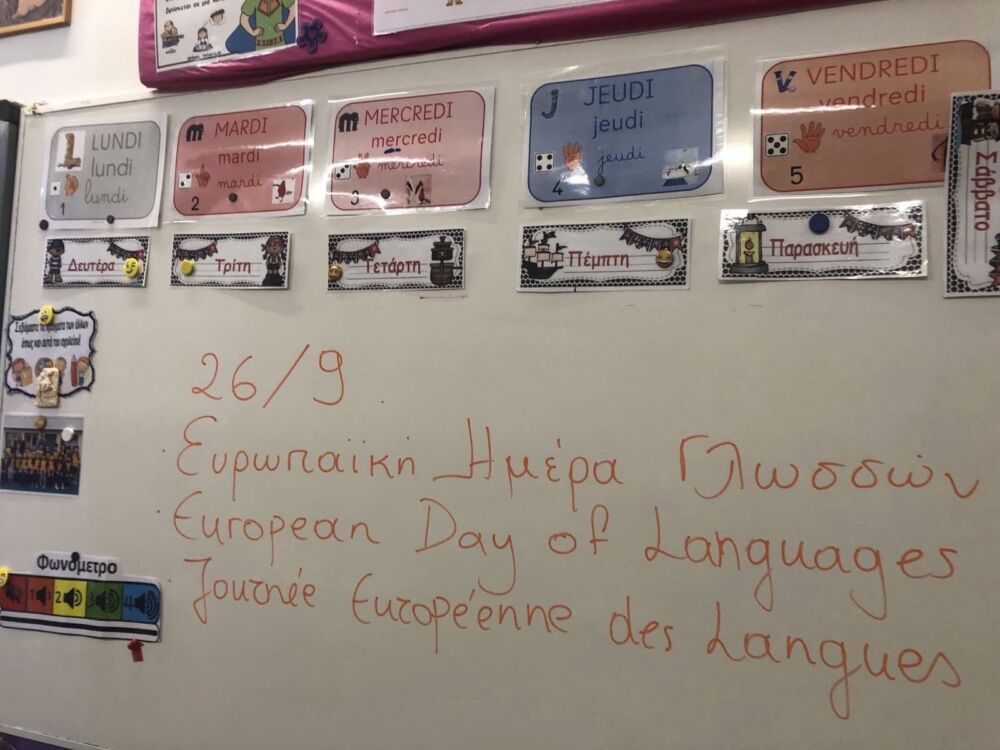 LUNDI
lundi
lundi
1
MARDI
mardi
mardi
2
MERCREDI
mercredi
mercredi
3
j JEUDI
jeudi
jeudi
4
v VENDREDI
vendredi
vendredi
5
Δευτέρα
Τρίτη
Τετάρτη
Πέμπτη
Παρασκευή
Σάββατο
Σεβόμαστε τα πράγματα των άλλων
όπως και αυτά του σχολείου!
26/9
Ευρωπαϊκή Ημέρα Γλωσσών
European Day of Languages
Journée Européenne des Langues
Φωνόμετρο
1 2 3 4